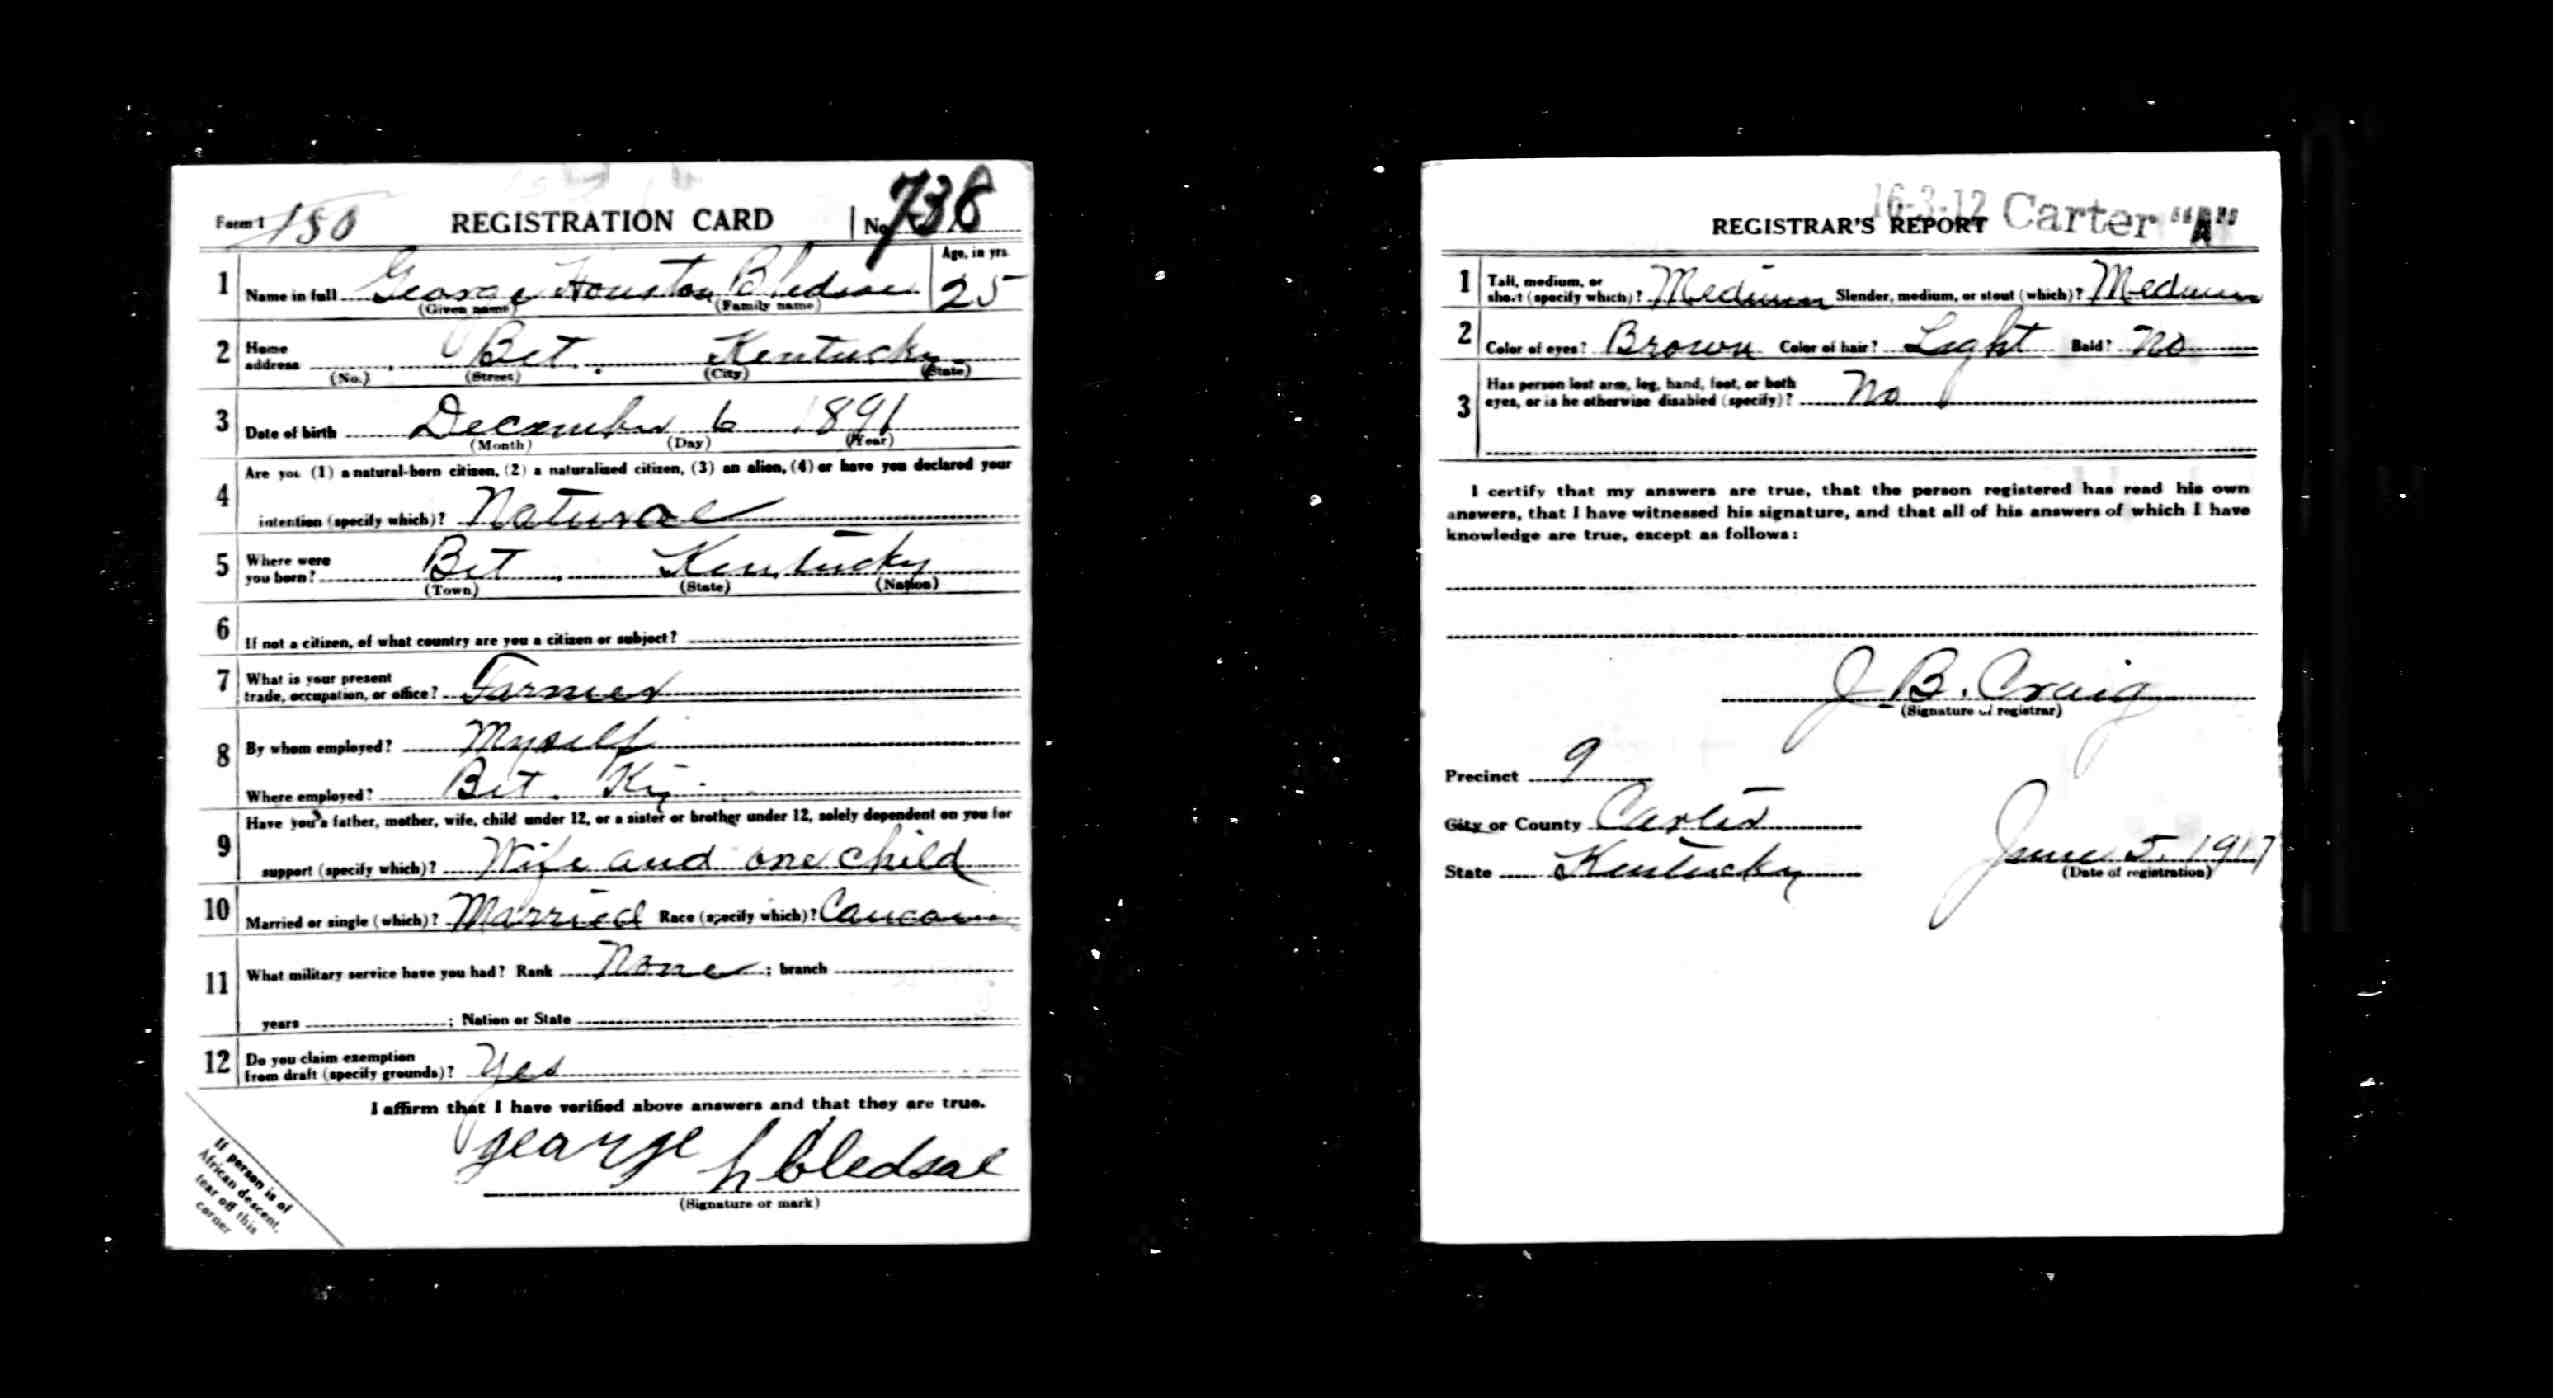 Form 1 150 REGISTRATION CARD No. 738
1 Name in full George Houston Bledsoe Age, in yrs. 25
(Given name) (Family name)
2 Home address Bet Kentucky
(No.) (Street) (City) (State)
3 Date of birth December 6 1891
(Month) (Day) (Year)
4 Are you (1) a natural-born citizen, (2) a naturalized citizen, (3) an alien, (4) or have you declared your
intention (specify which)? Natural
5 Where were you born? Bet Kentucky
(Town) (State) (Nation)
6 If not a citizen, of what country are you a citizen or subject?
7 What is your present
trade, occupation, or office? Farmer
8 By whom employed? Myself
Where employed? Bet. Ky.
9 Have you a father, mother, wife, child under 12, or a sister or brother under 12, solely dependent on you for
support (specify which)? Wife and one child
10 Married or single (which)? Married Race (specify which)?
11 What military service have you had? Rank None ; branch
years ; Nation or State
12 Do you claim exemption
from draft (specify grounds)? Yes
I affirm that I have verified above answers and that they are true.
george h bledsoe
(Signature or mark)
If person is of
African descent,
tear off this
corner
16-3-12 Carter "A"
REGISTRAR'S REPORT
1 Tall, medium, or
short (specify which)? Medium Slender, medium, or stout (which)? Medium
2 Color of eyes? Brown Color of hair? Light Bald? No
3 Has person lost arm, leg, hand, foot, or both
eyes, or is he otherwise disabled (specify)? No
I certify that my answers are true, that the person registered has read his own
answers, that I have witnessed his signature, and that all of his answers of which I have
knowledge are true, except as follows:
J. B. Craig
(Signature of registrar)
Precinct 9
City or County Carter
State Kentucky June 5, 1917
(Date of registration)